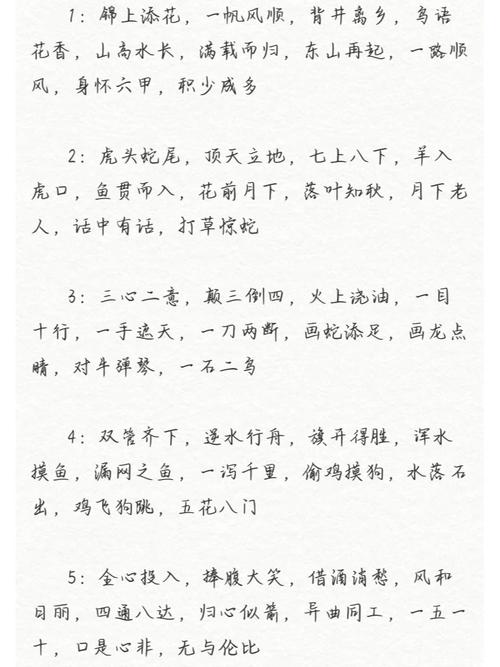 1：锦上添花，一帆风顺，背井离乡，鸟语
花香，山高水长，满载而归，东山再起，一路顺
风，身怀六甲，积少成多
2：虎头蛇尾，顶天立地，七上八下，羊入
虎口，鱼贯而入，花前月下，落叶知秋，月下老
人，话中有话，打草惊蛇
3：三心二意，颠三倒四，火上浇油，一目
十行，一手遮天，一刀两断，画蛇添足，画龙点
睛，对牛弹琴，一石二鸟
4：双管齐下，逆水行舟，旗开得胜，浑水
摸鱼，漏网之鱼，一泻千里，偷鸡摸狗，水落石
出，鸡飞狗跳，五花八门
5：全心投入，捧腹大笑，借酒消愁，风和
日丽，四通八达，归心似箭，异曲同工，一五一
十，口是心非，无与伦比